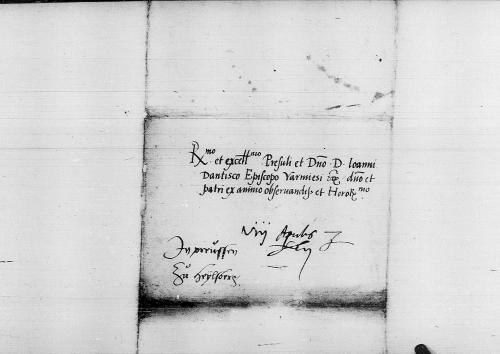 Rmo et excellmo Presuli et Dno D. Ioanni
Dantisco Episcopo Varmiesi dno et
patri ex animo observandiss et Honorand
In preussen
Zu heylsberg